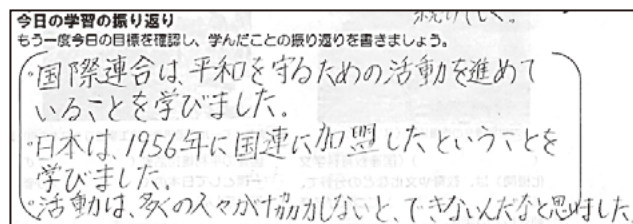 続けていく。
今日の学習の振り返り
もう一度今日の目標を確認し、学んだことの振り返りを書きましょう。
・国際連合は、平和を守るための活動を進めて
いることを学びました。
・日本は、1956年に国連に加盟したということを
学びました。
・活動は、多くの人々が協力しないと、できないんだなと思いました。